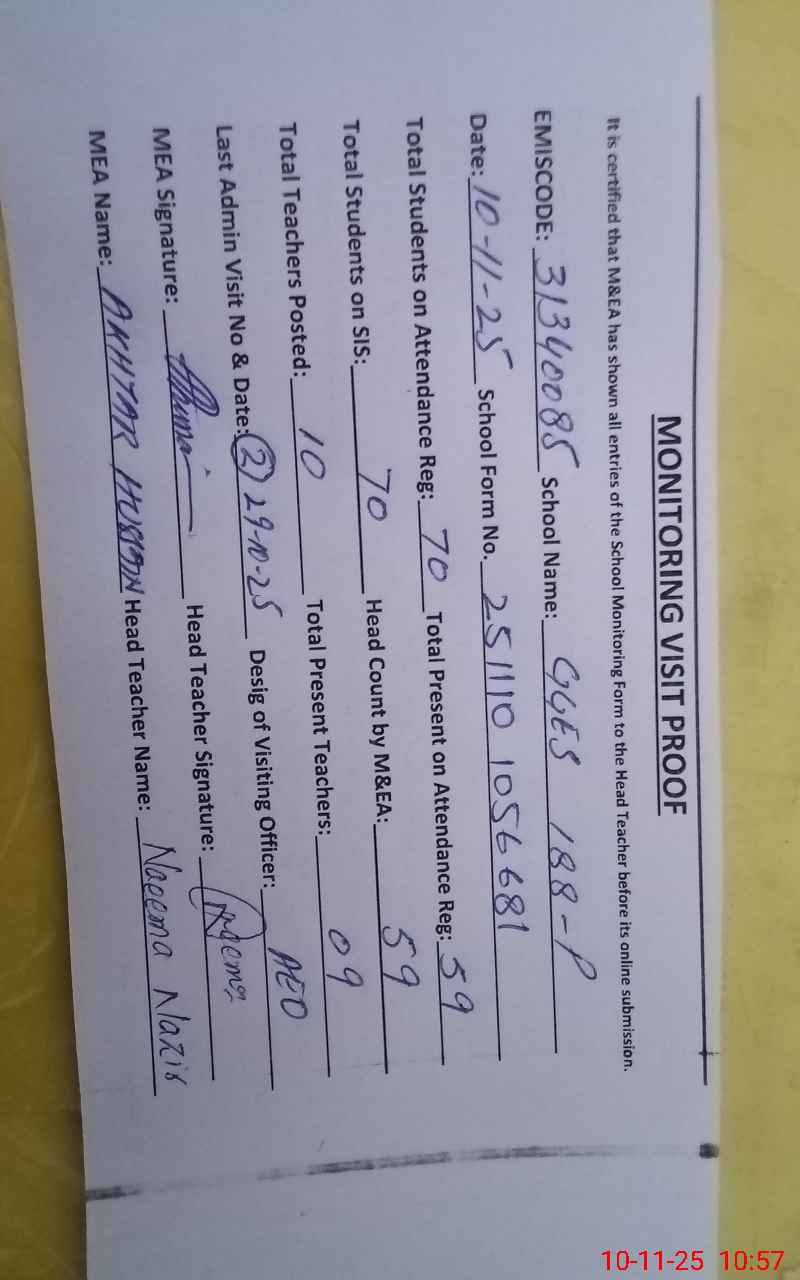 MONITORING VISIT PROOF
It is certified that M&EA has shown all entries of the School Monitoring Form to the Head Teacher before its online submission.
EMISCODE: 31340085 School Name: GGES 188-P
Date: 10-11-25 School Form No. 251110 1056681
Total Students on Attendance Reg: 70 Total Present on Attendance Reg: 59
Total Students on SIS: 70 Head Count by M&EA: 59
Total Teachers Posted: 10 Total Present Teachers: 09
Last Admin Visit No & Date: (2) 29-10-25 Desig of Visiting Officer: AEO
MEA Signature: Head Teacher Signature: Naeema
MEA Name: AKHTAR HUSSAIN Head Teacher Name: Naeema Nazir
10-11-25 10:57